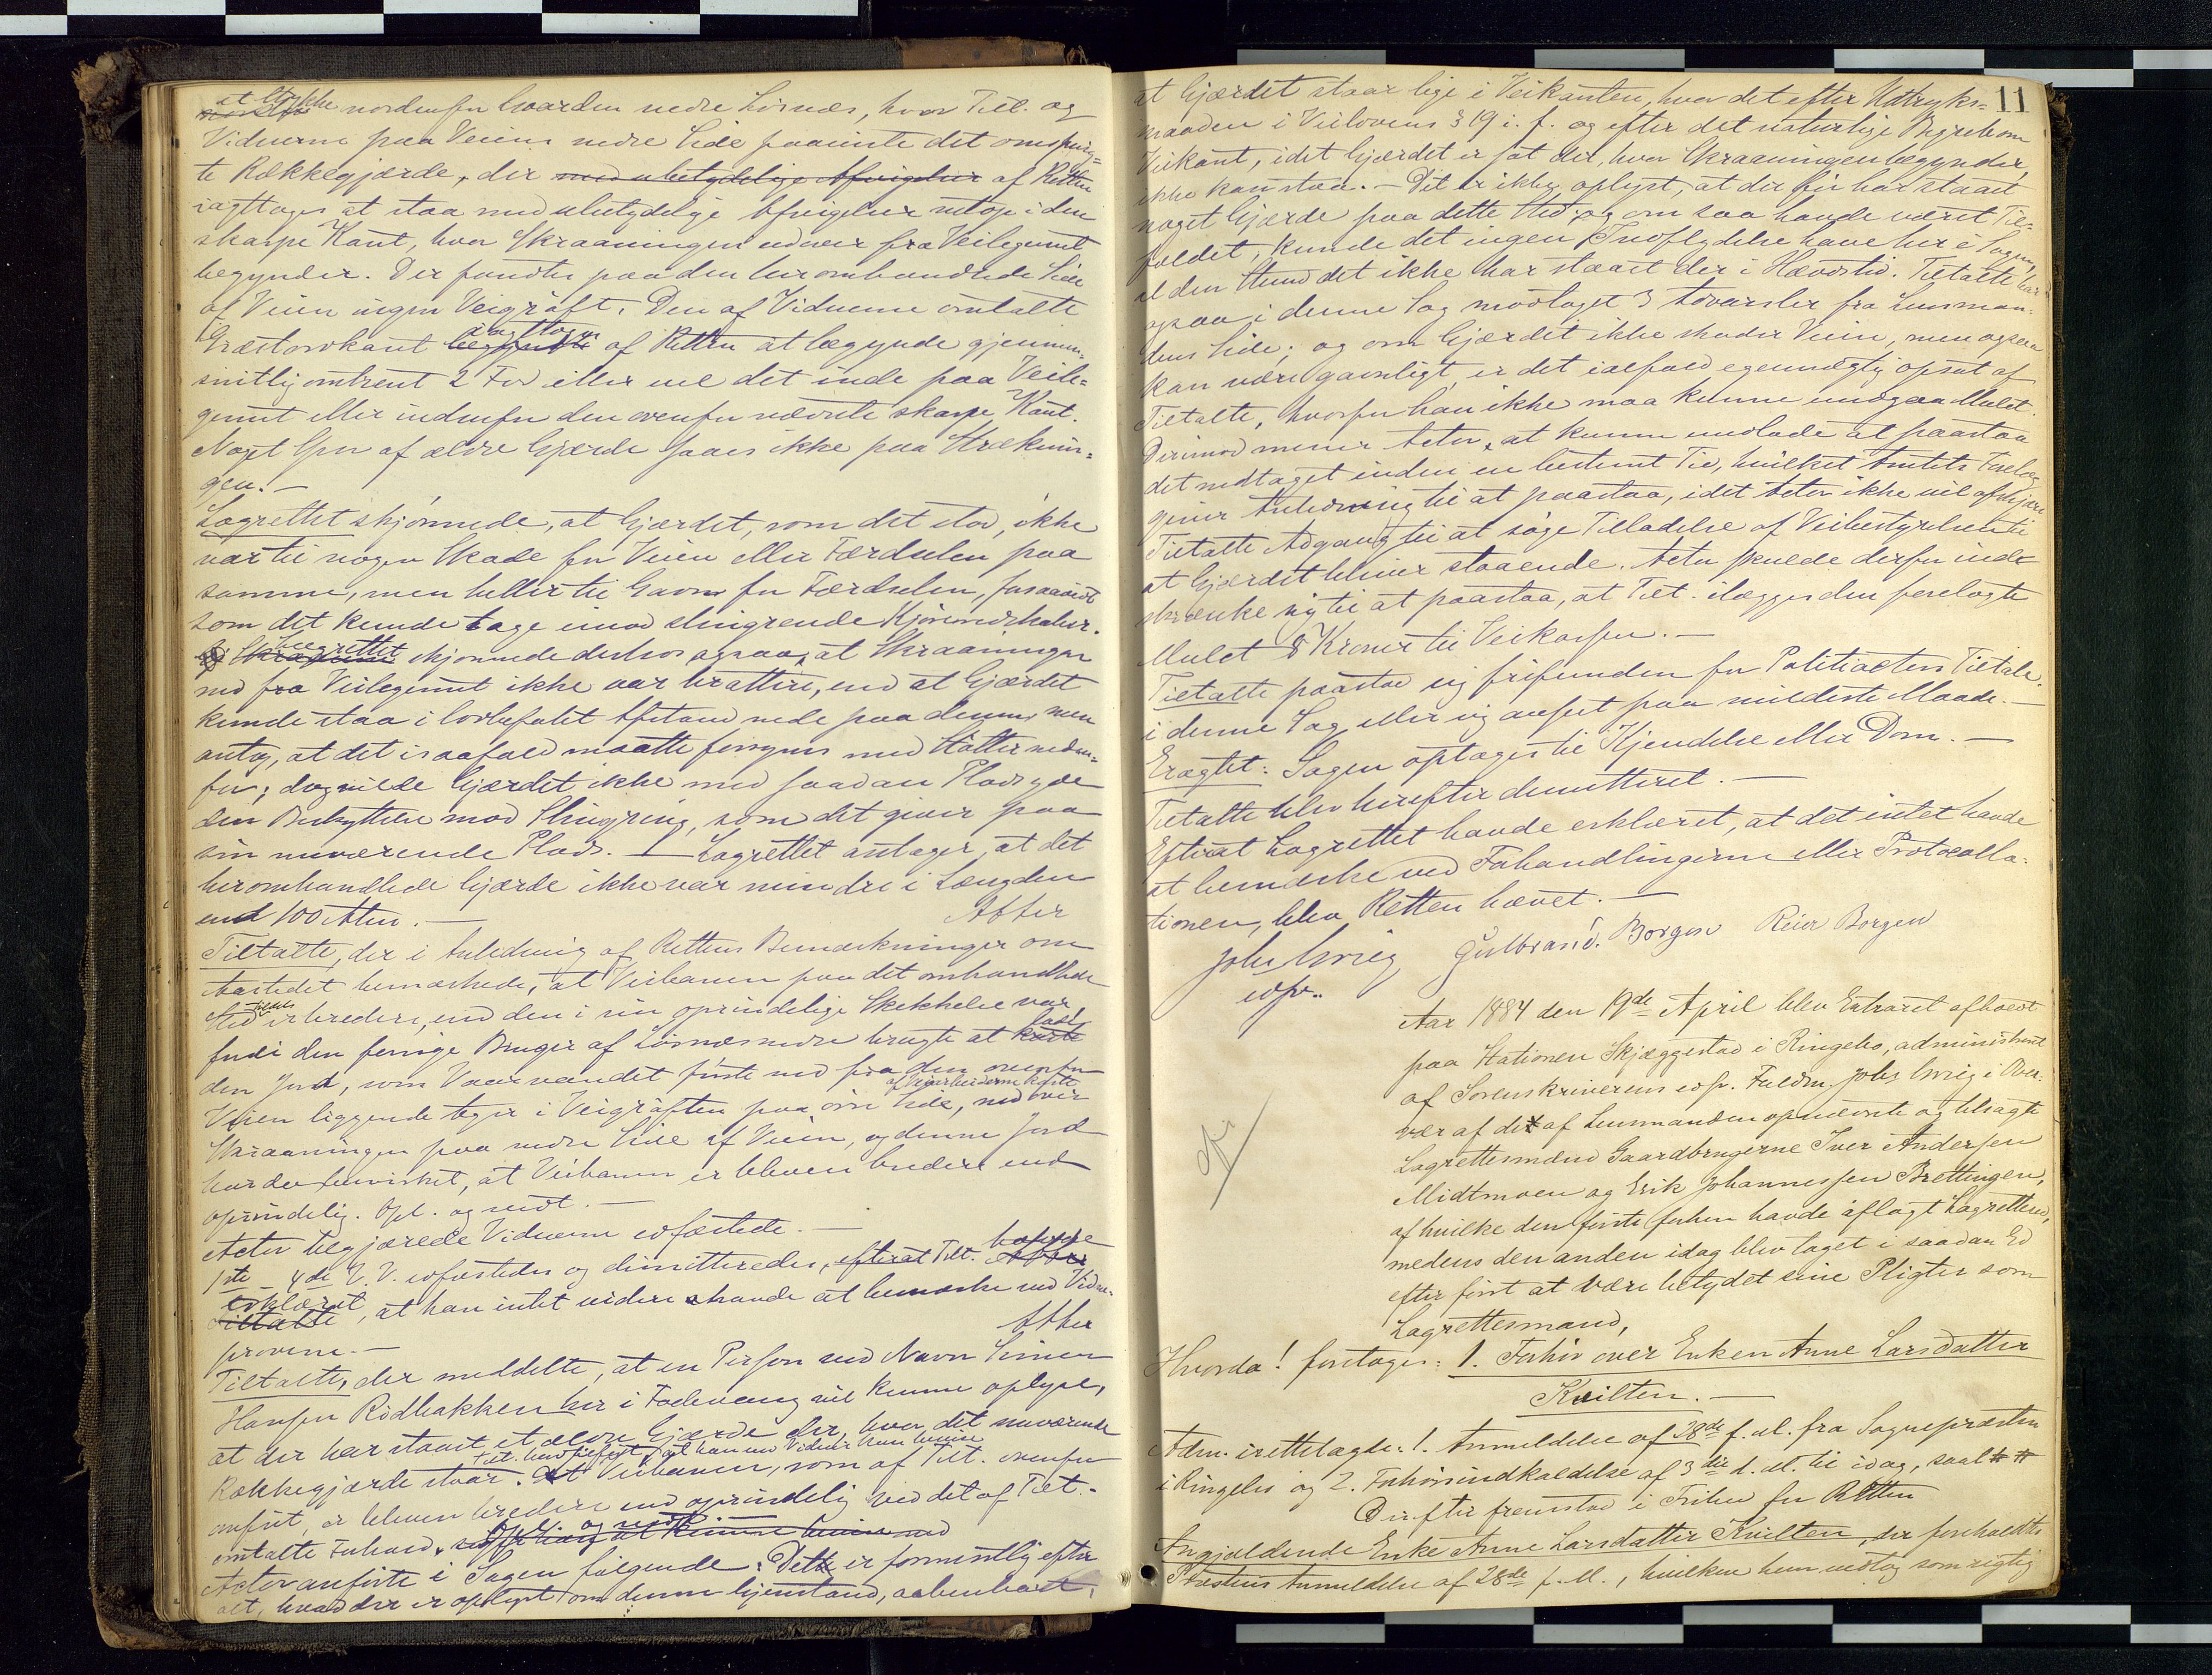 et Stykke nordenfor Gaarden nedre Losnæs, hvor Tilt. og
Vidnerne paa Veiens nedre Side paaviste det omspurg-
te Rækkegjærde, der med ubetydelige Afvigelser af Retten
iagttoges at staa med ubetydelige Afvigelser netop i den
skarpe Kant, hvor Skraaningen udover fra Veilegemet
begynder. Der fandtes paa den heromhandlede Side
af Veien ingen Veigrøft. Den af Vidnerne omtalte
Græstorvkant iagttoges af Retten at begynde gjennem-
snitlig omtrent 2 Fod eller vel det inde paa Veile-
gemet eller indenfor den ovenfor nævnte skarpe Kant.
Noget Spor af ældre Gjærde saaes ikke paa Stræknin-
gen.—
Lagrettet skjønnede, at Gjærdet, som det stod, ikke
var til nogen Skade for Veien eller Færdselen paa
samme, men heller til Gavn for Færdselen, forsaavidt
som det kunde tage imod slingrende Kjøreredskaber.
Lagrettet skjønnede derhos ogsaa, at Skraaningen
ned fra Veilegemet ikke var brattere, end at Gjærdet
kunde staa i lovbefalet Afstand nede paa denne, men
antog, at det isaafald maatte forsynes med Støtter neden-
for; dog vilde Gjærdet ikke med saadan Plads yde
den Beskyttelse mod Slingring, som det giver paa
sin nuværende Plads. — Lagrettet antager, at det
heromhandlede Gjærde ikke var mindre i Længden
end 100 Alen.— Atter
Tiltalte, der i Anledning af Rettens Bemærkninger om
Aastedet bemærkede, at Veibanen paa det omhandlede
Sted er bredere, end den i sin oprindelige Skikkelse var,
fordi den forrige Bruger af Losnæs nedre brugte at kaste
den Jord, som Vaarvandet førte ned fra den ovenfor
Veien liggende Ager i Veigrøften paa øvre Side, ned over
Skraaningen paa nedre Side af Veien, og denne Jord
har da bevirket, at Veibanen er bleven bredere end
oprindelig. Opl. og vedt.—
Actor begjærede Vidnerne edfæstede.—
1ste – 4de V. V. edfæstedes og dimitteredes, efterat Tilt. havde
erklæret, at han intet videre havde at bemærke ved Vidne-
provene.— Atter
Tiltalte, der meddelte, at en Person ved Navn Simen
Hansen Rødbakken her i Fodevang vil kunne oplyse,
at der har staaet et ældre Gjærde der, hvor det nuværende
Rækkegjærde staar. At Veibanen, som af Tilt. ovenfor
anført, er bleven bredere end oprindelig ved det af Tilt.
omtalte Forhold, Opl. og vedt.
Actor anførte i Sagen følgende: Dette er formentlig efter
alt, hvad der er oplyst om denne Gjenstand, aabenbart,
11
at Gjærdet staar lige i Veikanten, hvor det efter Udtryks-
maaden i Veilovens § 19 i. f. og efter det naturlige Begreb om
Veikant, idet Gjærdet er sat der, hvor Skraaningen begynder,
ikke kan staa.— Det er ikke oplyst, at der før har staaet
noget Gjærde paa dette Sted, og om saa havde været Til-
fældet, kunde det ingen Indflydelse have her i Sagen,
al den Stund det ikke har staaet der i Hævdstid. Tiltalte har
ogsaa i denne Sag modtaget 3 Advarsler fra Lensman-
dens Side; og om Gjærdet ikke skader Veien, men ogsaa
kan være gavnligt, er det ialfald egenmægtig opsat af
Tiltalte, hvorfor han ikke maa kunne undgaa Mulct.
Derimod mener Actor, at kunne undlade at paastaa
det nedtaget inden en bestemt Tid, hvilket Amtets Forelæg
giver Anledning til at paastaa, idet Actor ikke vil afskjære
Tiltalte Adgang til at søge Tilladelse af Veibestyrelsen til
at Gjærdet bliver staaende. Actor skulde derfor ind-
skrænke sig til at paastaa, at Tilt. ilægges den forelagte
Mulct 8 Kroner til Veikassen.—
Tiltalte paastod sig frifunden for Politiactors Tiltale
i denne Sag eller sig anseet paa mildeste Maade.—
Eragtet: Sagen optages til Kjendelse eller Dom.—
Tiltalte blev herefter demitteret.—
Efterat Lagrettet havde erklæret, at det intet havde
at bemærke ved Forhandlingerne eller Protocolla-
tionen, blev Retten hævet.—
Johs Grieg Gulbrand. Borgen Reier Borgen
edsv.
Aar 1884 den 19de April blev Extraret afholdt
paa Stationen Skjæggestad i Ringebo, administreret
af Sorenskriverens edsv. Fuldm. Johs Grieg i Over-
vær af de af Lensmanden opnævnte og tilsagte
Lagrettesmænd Gaardbrugerne Iver Andersen
Midtmoen og Erik Johannessen Brettingen,
af hvilke den første forhen havde aflagt Lagretteed,
medens den anden idag blev taget i saadan Ed
efter først at være betydet sine Pligter som
Lagrettesmand,
Hvorda! foretoges: 1. Forhør over Enken Anne Larsdatter
Kvilten.—
Adm. irettelagde: 1. Anmeldelse af 28de f. M. fra Sognepræsten
i Ringebo og 2. Forhørsindkaldelse af 3die d. M. til idag, saal. # #
Derefter fremstod i Frihed for Retten
Angjældende Enke Anne Larsdatter Kvilten, der foreholdtes
Præstens Anmeldelse af 28de f. M., hvilken hun vedtog som rigtig